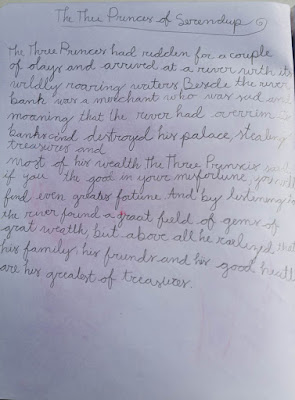 The Thee Princes of Serendup 5
The Three Princes had ridden for a couple
of days and arrived at a river with its
wildly roaring writers. Beside the river
bank was a merchant who was sad and
moaning that the river had overrun its
banks and destroyed his palace, stealing
treasures and
most of his wealth. The Three Princess said
if you the good in your misfortune, you will
find even greater fortune. And by listening to
the river found a graet field of gems of
grat weatlh, but above all he raelized that
his family, his frunds and his good health
are his greatest of treasures.